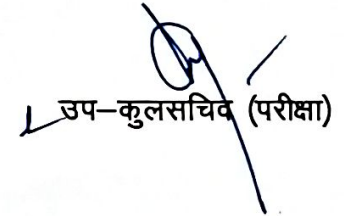 उप–कुलसचिव (परीक्षा)